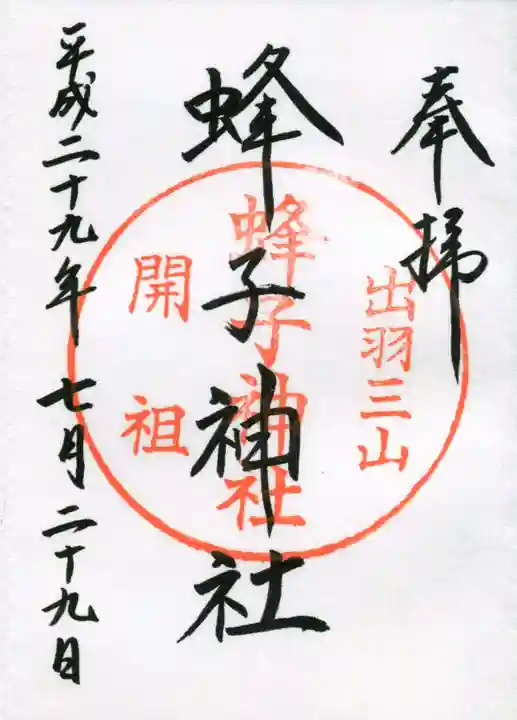 奉拝
出羽三山
蜂子神社
蜂子神社
開祖
平成二十九年 七月 二十九日